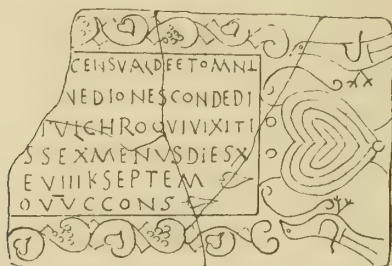 CENSVALDEETOMNI
VEDIONESCONDEDI
TVLCHROQVIVIXITI
SSEXMENVSDIESX
EVIIIKSEPTEM
OVVCCONS